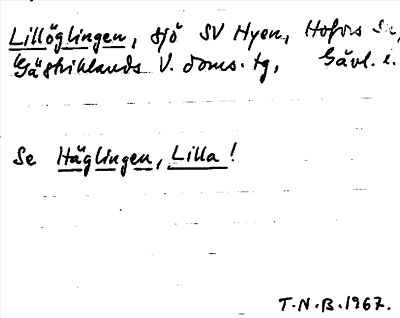 Lillöglingen, sjö SV Hyen, Hofors sn,
Gästriklands V. doms. tg, Gävl. l.
Se Häglingen, Lilla!
T.N.B. 1967.